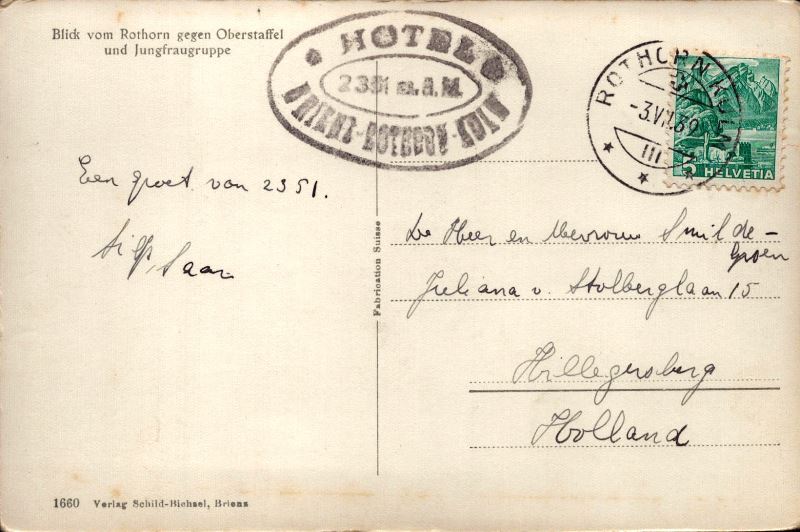 Blick vom Rothorn gegen Oberstaffel
und Jungfraugruppe
HOTEL
2351 m.ü.M.
BRIENZ-ROTHORN-KULM
ROTHORN KULM
-3.VII.39
III
HELVETIA
Een groet van 2351.
Saar
Fabrication Suisse
De Heer en Mevrouw Smilde-
Groen
Juliana v. Stolberglaan 15
Hillegersberg
Holland
1660 Verlag Schild-Bichsel, Brienz